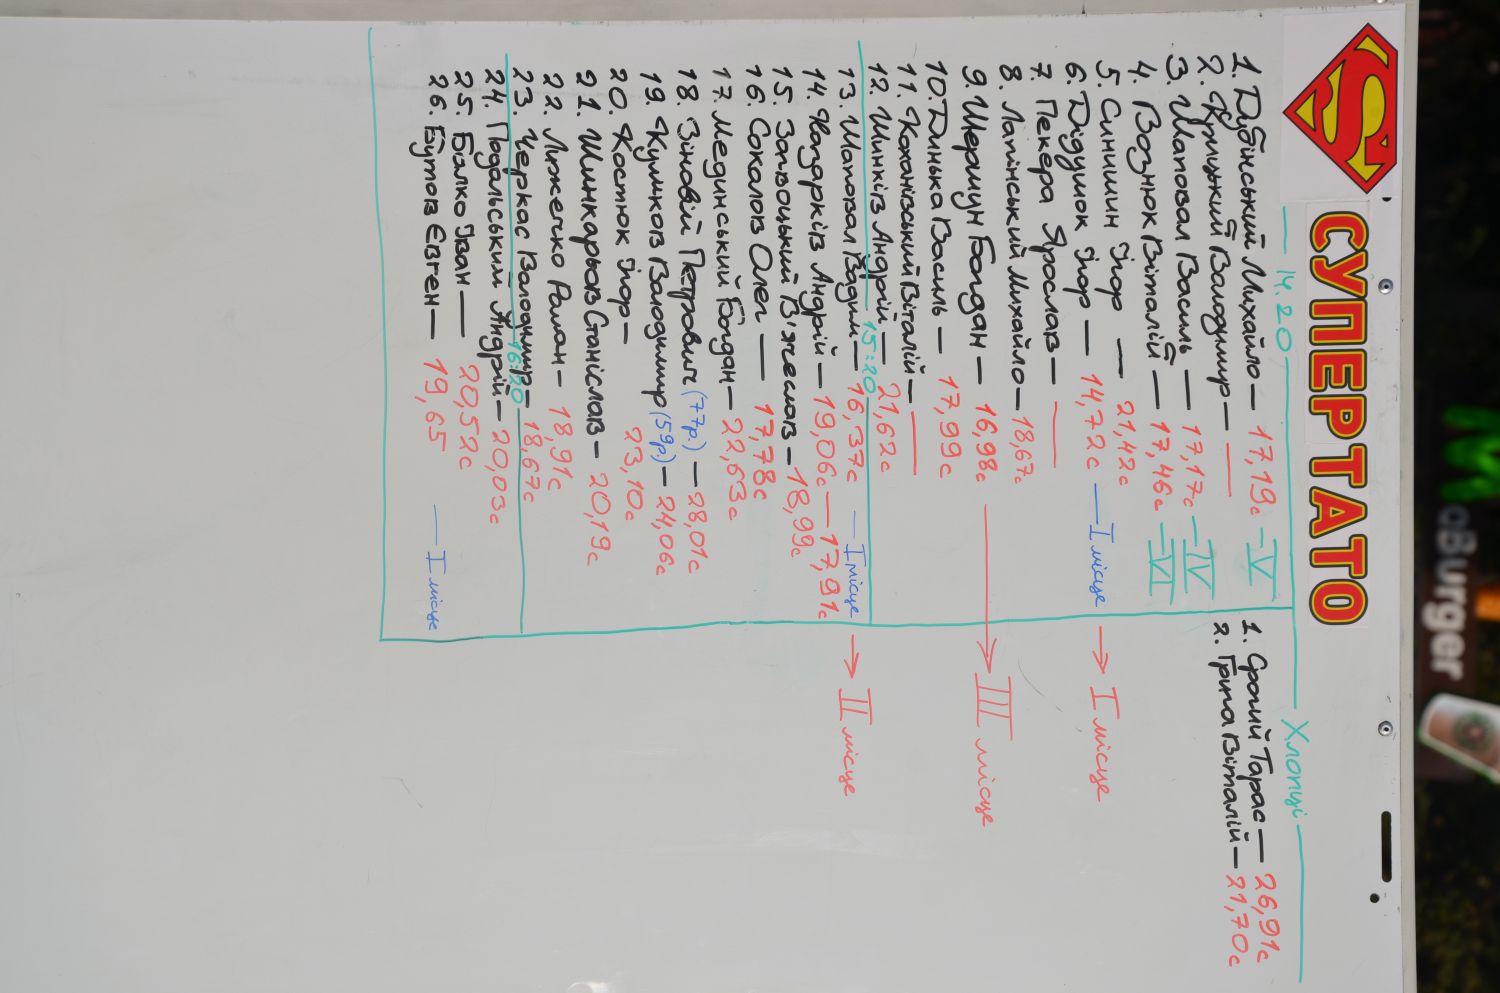 S
СУПЕРТАТО
14.20
1. Дубінський Михайло — 17,19с — V
2. Крицький Володимир —
3. Шаповал Василь — 17,17с — IV
4. Вознюк Віталій — 17,46с — VI
5. Синишин Ігор — 21,42с
6. Дідушок Ігор — 14,72с — I місце → I місце
7. Пекера Ярослав —
8. Лапінський Михайло — 18,67с
9. Шершун Богдан — 16,98с → III місце
10. Динька Василь — 17,99с
11. Кохановський Віталій —
12. Шинків Андрій — 21,62с
15:20
13. Шаповал Вадим — 16,37с — I місце → II місце
14. Назарків Андрій — 19,06с — 17,91с
15. Заявоцький В'ячеслав — 18,99с
16. Соколов Олег — 17,78с
17. Мединський Богдан — 22,63с
18. Зіновій Петрович (77р.) — 28,01с
19. Куликов Володимир (59р.) — 24,06с
20. Костюк Ігор — 23,10с
21. Шинкарьов Станіслав — 20,19с
22. Лижечко Роман — 18,91с
23. Черкас Володимир — 18,67с
16:20
24. Подальський Андрій — 20,03с
25. Балко Іван — 20,52с
26. Бутов Євген — 19,65 — I місце
Хлопці
1. Срогий Тарас — 26,91с
2. Грига Віталій — 21,70с
Burger